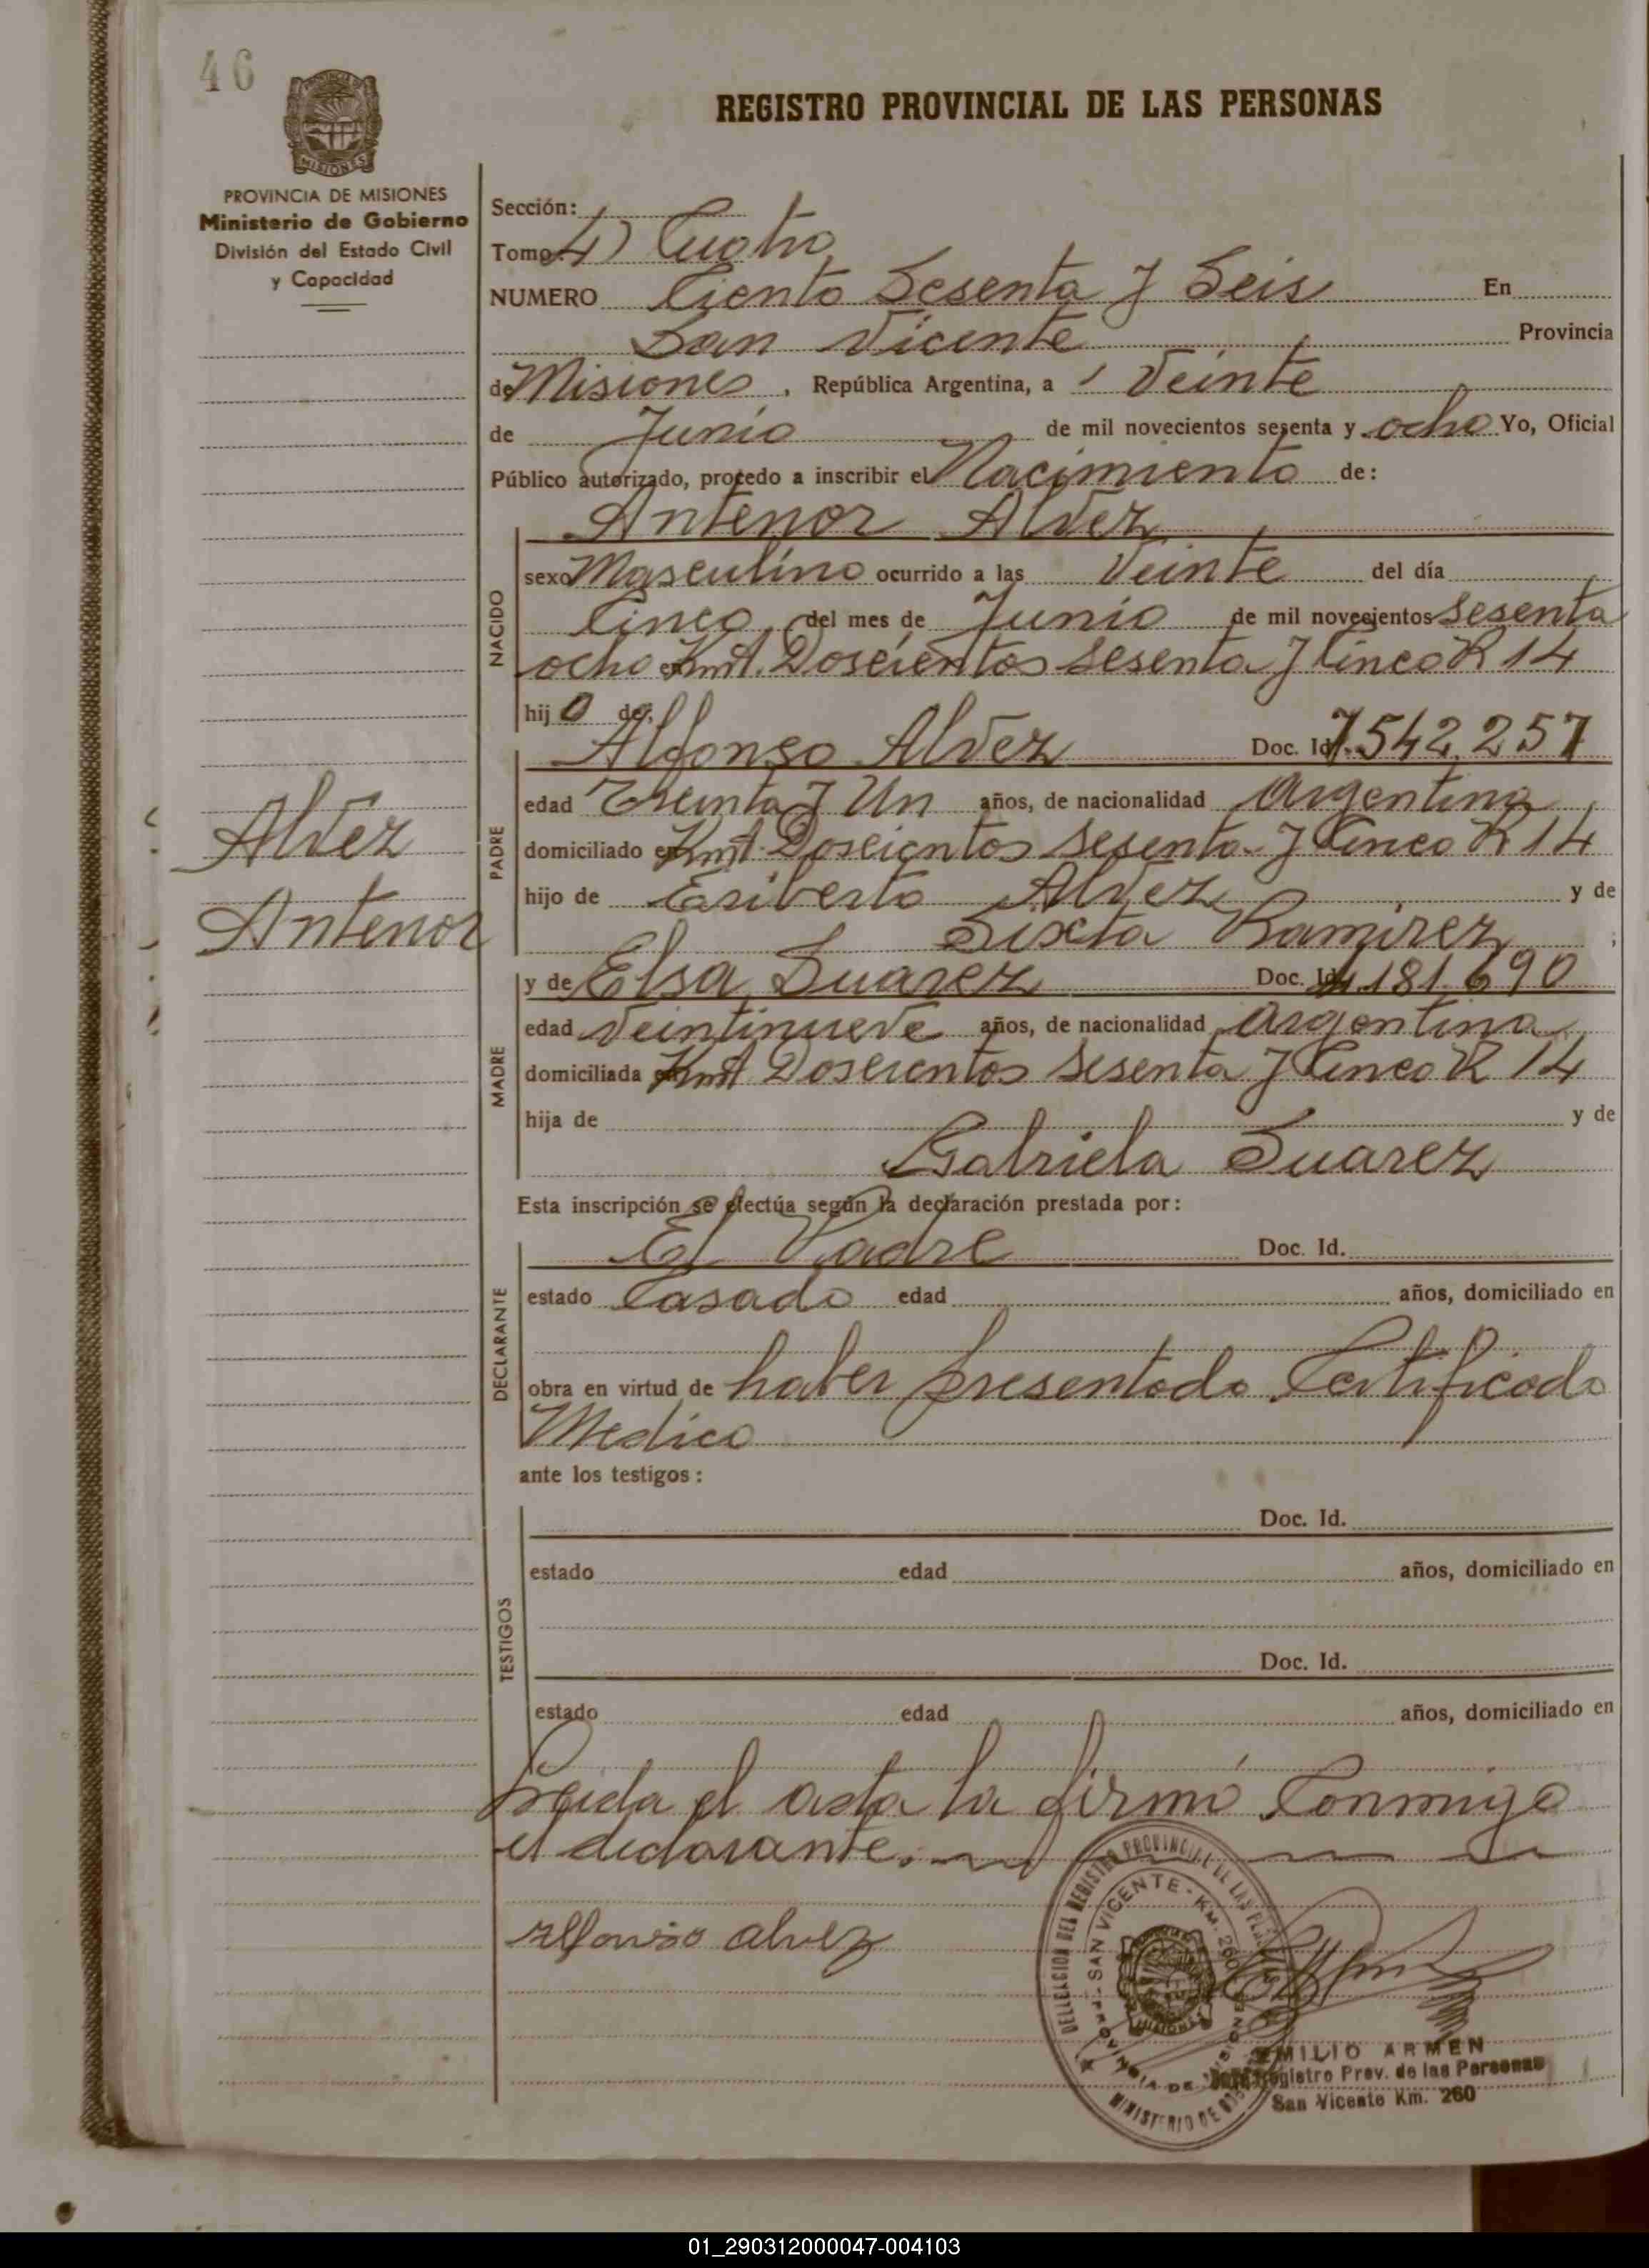 46
PROVINCIA DE MISIONES
MISIONES
PROVINCIA DE MISIONES
Ministerio de Gobierno
División del Estado Civil
y Capacidad
Alvez
Antenor
REGISTRO PROVINCIAL DE LAS PERSONAS
Sección:
Tomo 4) Cuatro
NUMERO Ciento Sesenta y Seis En
San Vicente Provincia
de Misiones, República Argentina, a Veinte
de Junio de mil novecientos sesenta y ocho Yo, Oficial
Público autorizado, procedo a inscribir el Nacimiento de:
Antenor Alvez
NACIDO
sexo Masculino ocurrido a las Veinte del día
Cinco del mes de Junio de mil novecientos Sesenta
ocho en Kmt. Doscientos Sesenta y Cinco R 14
hijo de
PADRE
Alfonso Alvez Doc. Id. 7.542.257
edad Treinta y Un años, de nacionalidad Argentina
domiciliado en Kmt. Doscientos Sesenta y Cinco R 14
hijo de Eriberto Alvez y de
Sixta Ramirez;
MADRE
y de Elsa Suarez Doc. Id. 4.181.690
edad Veintinueve años, de nacionalidad Argentina
domiciliada en Kmt Doscientos Sesenta y Cinco R 14
hija de y de
Gabriela Suarez
Esta inscripción se efectúa según la declaración prestada por:
DECLARANTE
El Padre Doc. Id.
estado Casado edad años, domiciliado en
obra en virtud de haber presentado Certificado
Medico
ante los testigos:
TESTIGOS
Doc. Id.
estado edad años, domiciliado en
Doc. Id.
estado edad años, domiciliado en
Leida el acta la firmó Conmigo
el declarante.
Alfonso alvez
DELEGACION DEL REGISTRO PROVINCIAL DE LAS
SAN VICENTE - KM. 260
PROVINCIA DE MISIONES
MISIONES
MINISTERIO DE
EMILIO ARMEN
Registro Prov. de las Personas
San Vicente Km. 260
01_290312000047-004103